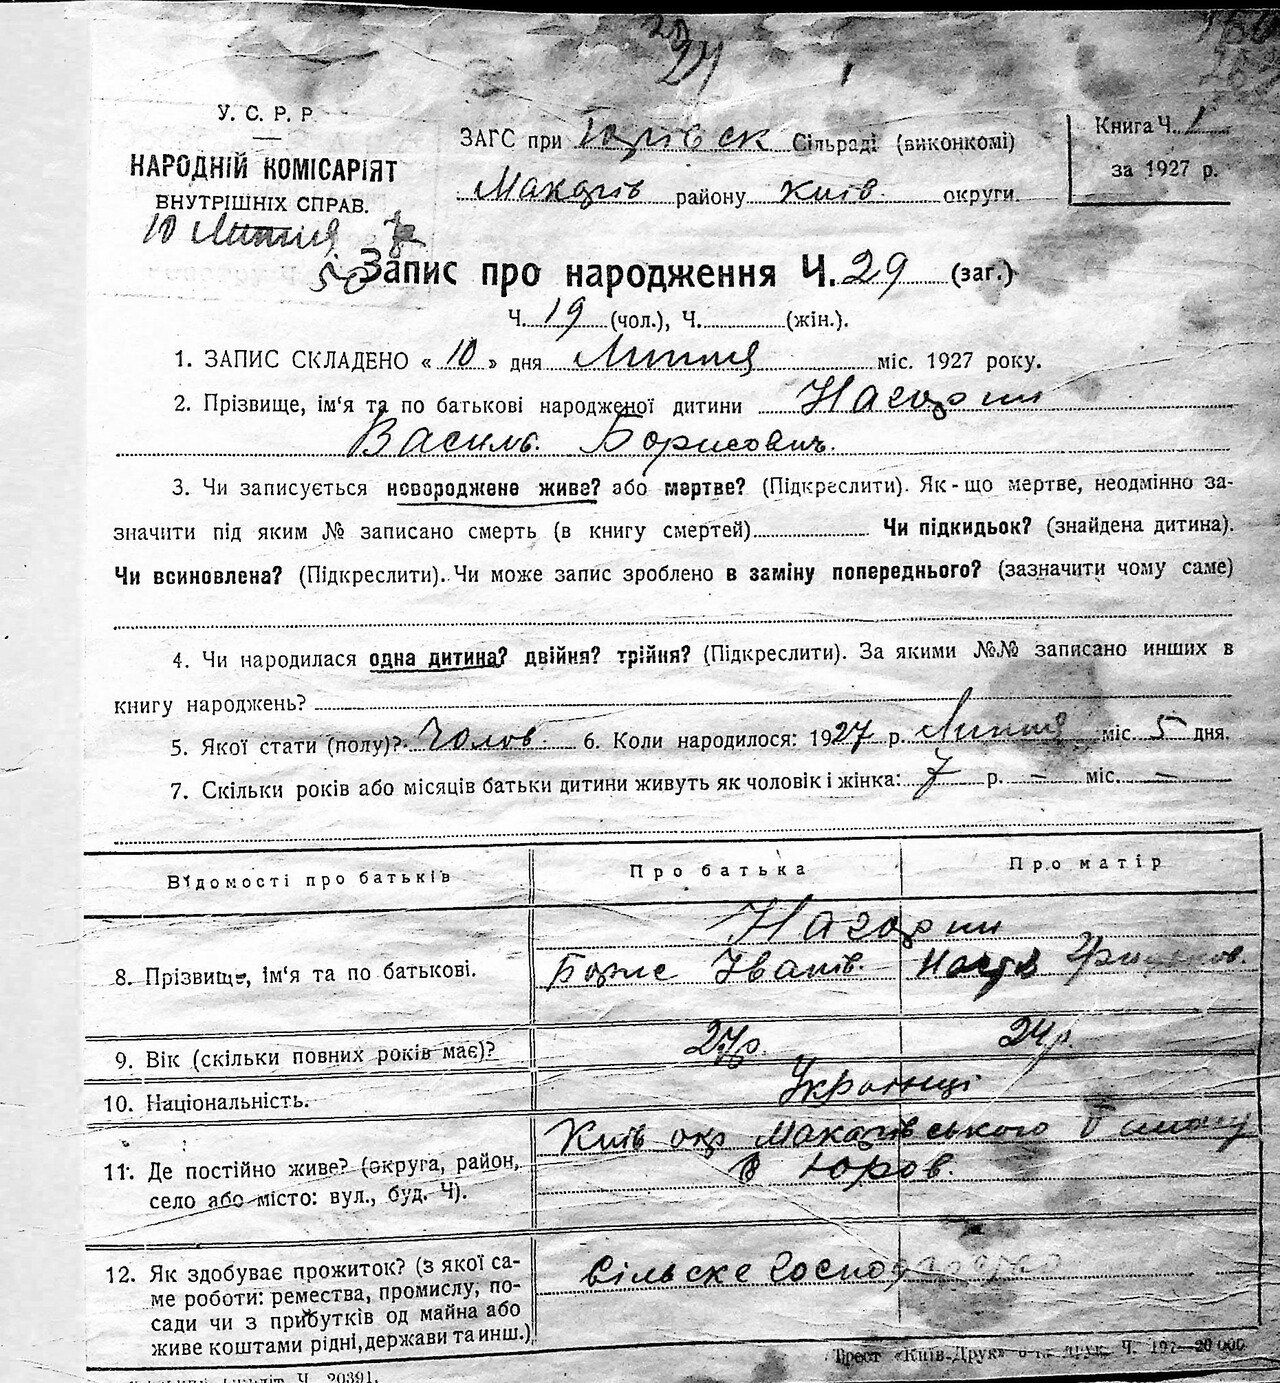 24
У. С. Р. Р
НАРОДНІЙ КОМІСАРІЯТ
ВНУТРІШНІХ СПРАВ.
ЗАГС при Юрівск Сільраді (виконкомі)
Макарів району Київ округи.
Книга Ч. 1
за 1927 р.
10 Липня
Запис про народження Ч. 29 (заг.)
Ч. 19 (чол.), Ч. (жін.).
1. ЗАПИС СКЛАДЕНО « 10 » дня Липня міс. 1927 року.
2. Прізвище, ім'я та по батькові народженої дитини Нагорни
Василь Борисович.
3. Чи записується новороджене живе? або мертве? (Підкреслити). Як-що мертве, неодмінно за-
значити під яким № записано смерть (в книгу смертей) Чи підкидьок? (знайдена дитина).
Чи всиновлена? (Підкреслити). Чи може запис зроблено в заміну попереднього? (зазначити чому саме)
4. Чи народилася одна дитина? двійня? трійня? (Підкреслити). За якими №№ записано инших в
книгу народжень?
5. Якої стати (полу)? Чолов. 6. Коли народилося: 1927 р. Липня міс. 5 дня.
7. Скільки років або місяців батьки дитини живуть як чоловік і жінка: 7 р. — міс. —
Відомості про батьків
Про батька
Про матір
Нагорни
8. Прізвище, ім'я та по батькові.
Борис Іванів.
Настя
9. Вік (скільки повних років має)?
27р.
24р
10. Національність.
Українці
11. Де постійно живе? (округа, район,
село або місто: вул., буд. Ч).
Київ окр Макарівського
Юров.
12. Як здобуває прожиток? (з якої са-
ме роботи: ремества, промислу, по-
сади чи з прибутків од майна або
живе коштами рідні, держави та инш.)
Сільске господарство
Трест «Київ-Друк»
Ч. 20391.